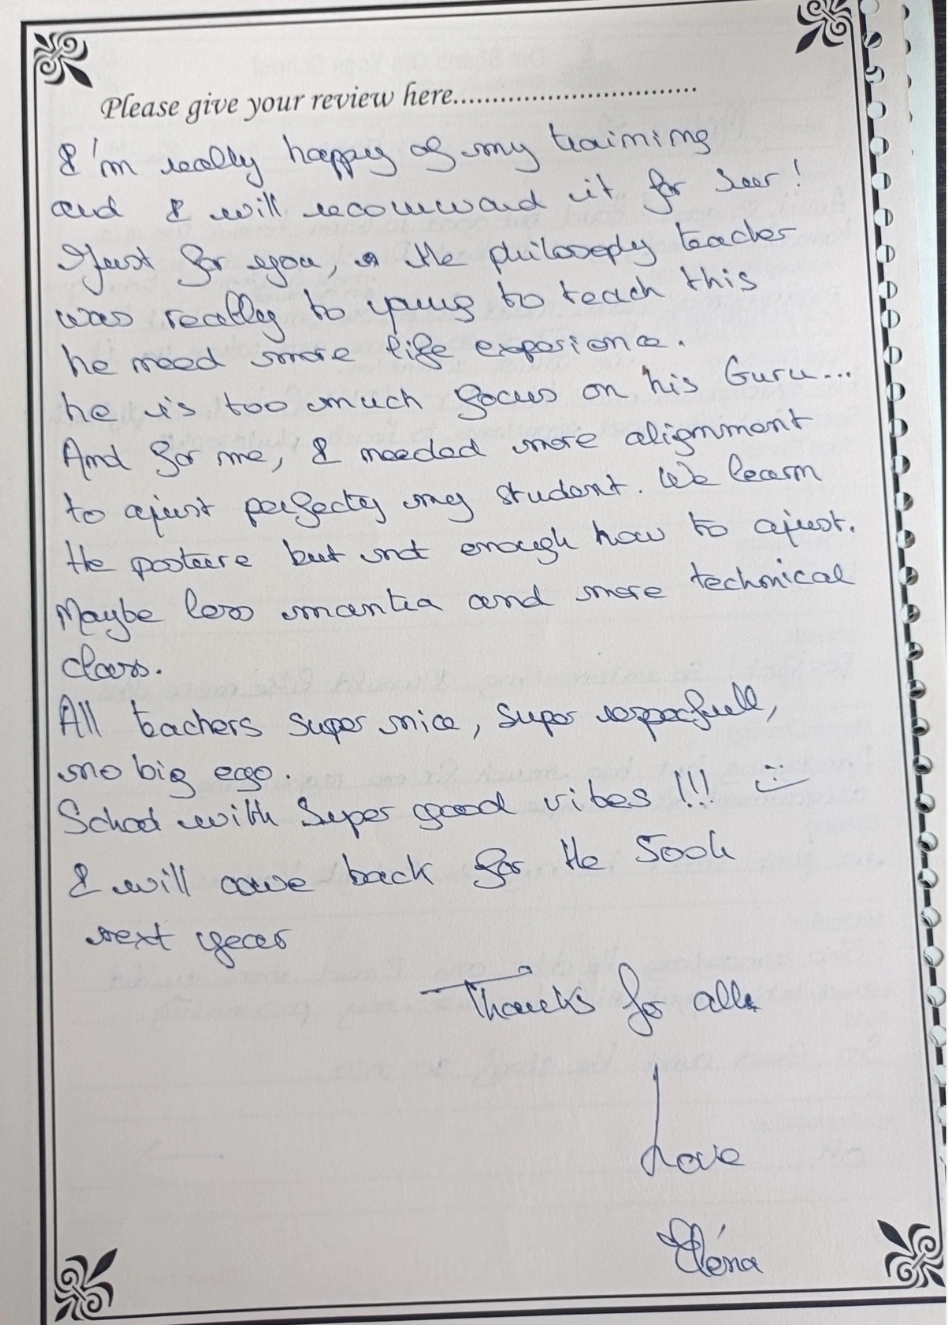 Please give your review here..............................
I'm really happy of my training
and I will recommand it for suer!
Just for you, the philosophy teacher
was really to young to teach this
he need more life experience.
he is too much focus on his Guru...
And for me, I needed more alignment
to ajust perfectly my student. We learn
the posture but not enough how to ajust.
Maybe less mantra and more technical
class.
All teachers super nice, super respecfull,
no big ego.
School with super good vibes !!!
I will come back for the 500h
next year
Thanks for all
Love
Eléna